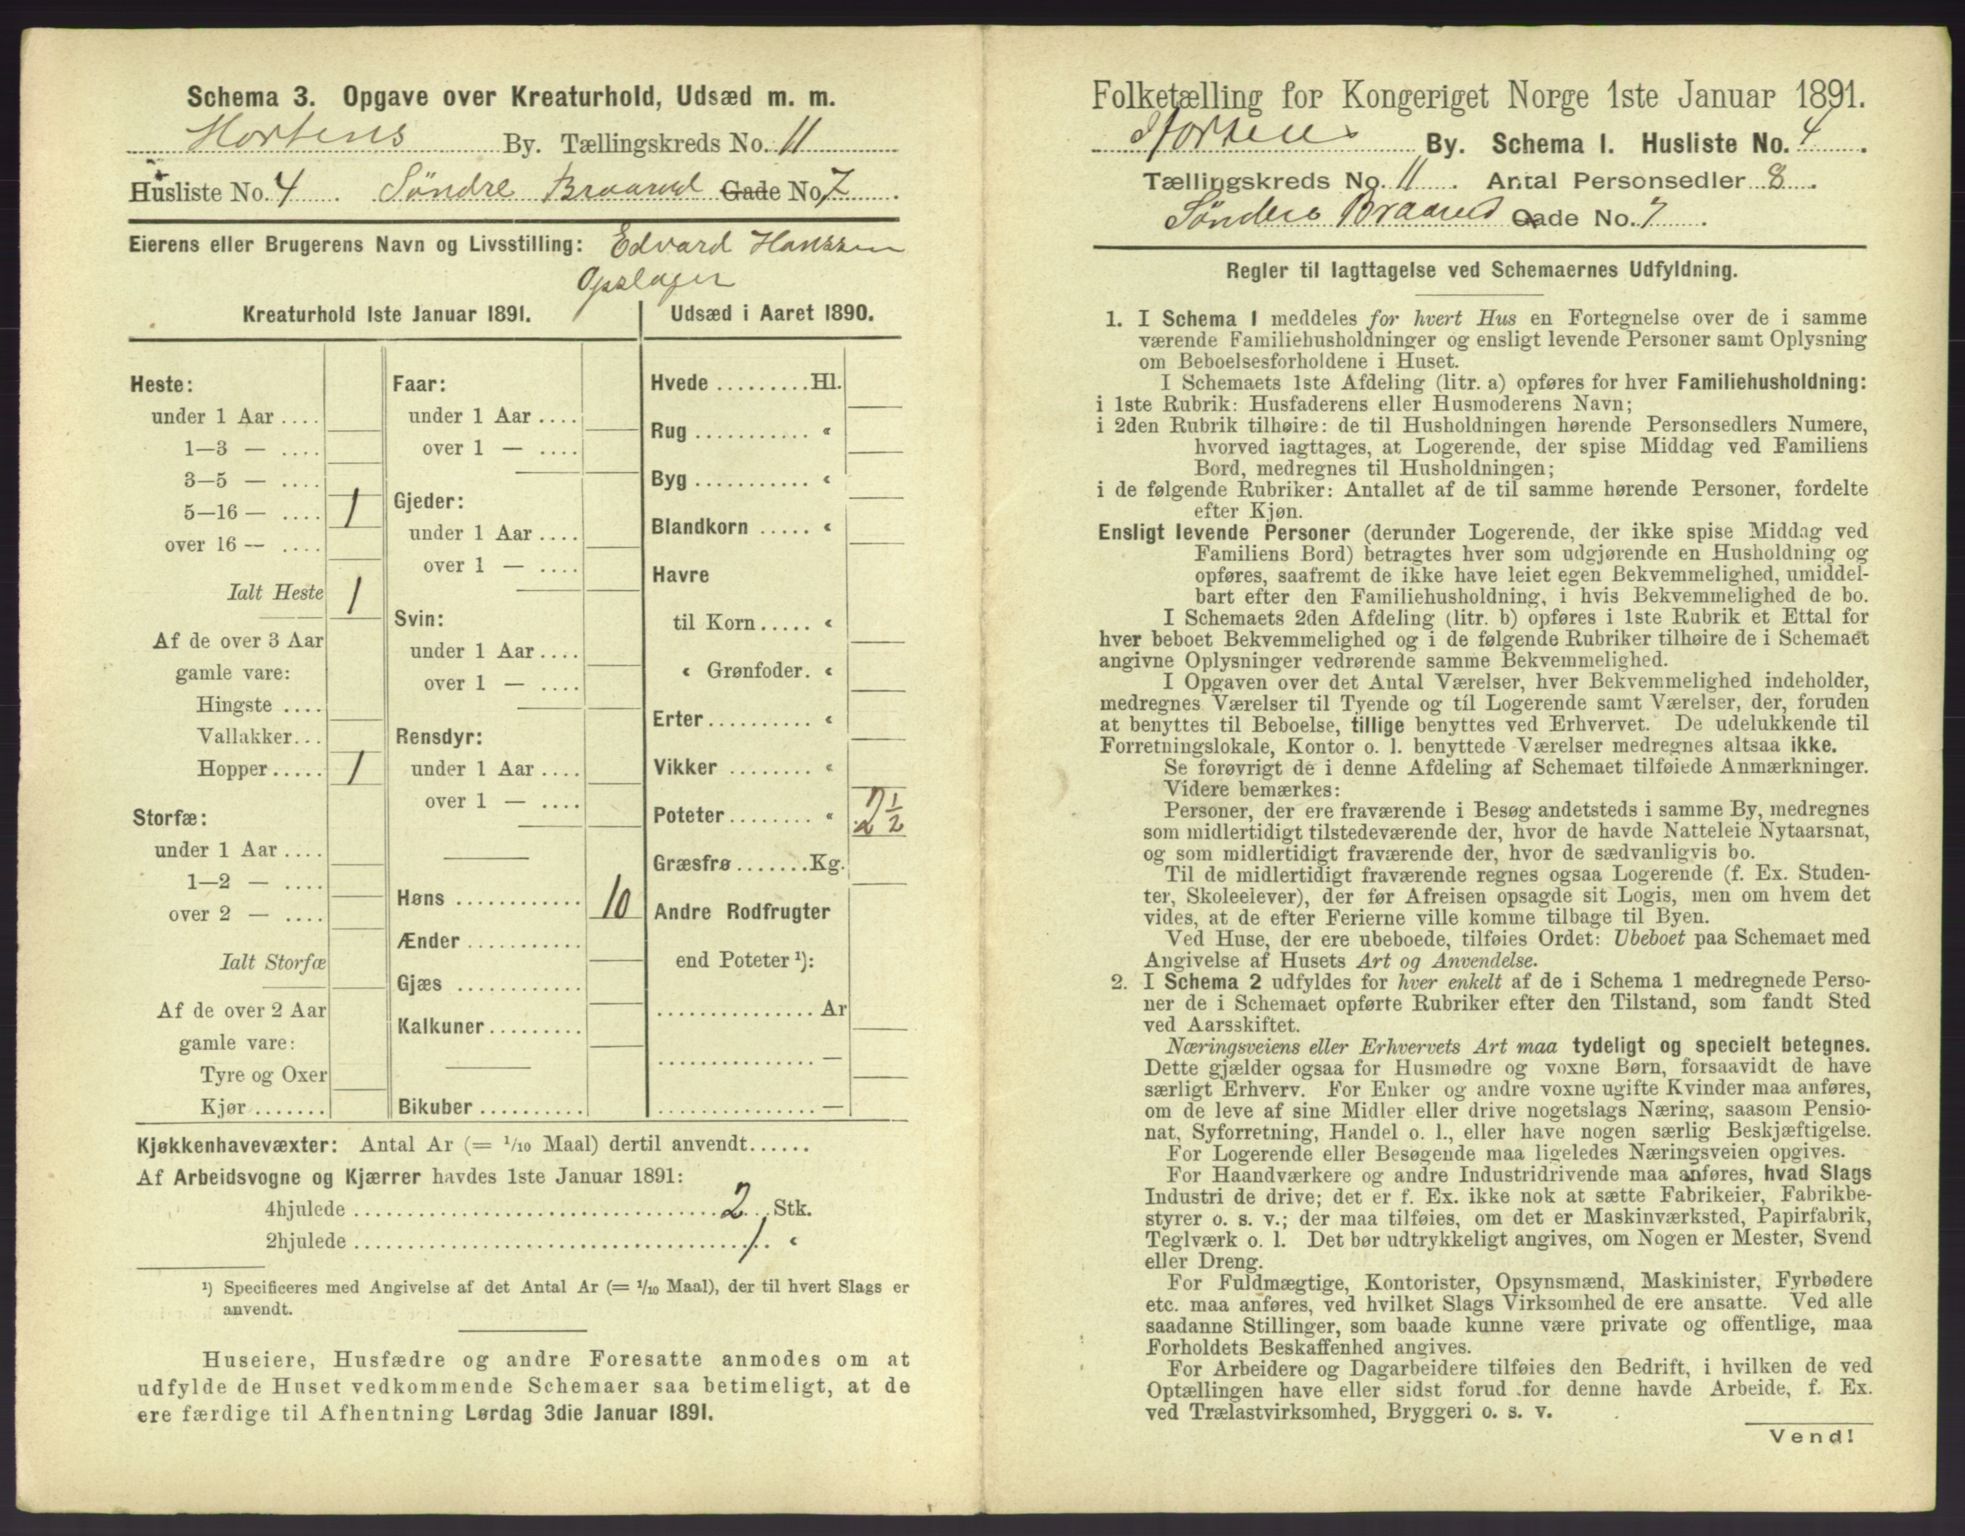 Schema 3. Opgave over Kreaturhold, Udsæd m. m.
Hortens By. Tællingskreds No. 11
Husliste No. 4 Søndre Braarud Gade No. 7
Eierens eller Brugerens Navn og Livsstilling: Edvard Hanssen
Opslager
Kreaturhold 1ste Januar 1891.
Heste:
under 1 Aar ....
1—3 — ....
3—5 — ....
5—16 — .... 1
over 16 — ....
Ialt Heste 1
Af de over 3 Aar
gamle vare:
Hingste ....
Vallakker...
Hopper..... 1
Storfæ:
under 1 Aar ....
1—2 — ....
over 2 — ....
Ialt Storfæ
Af de over 2 Aar
gamle vare:
Tyre og Oxer
Kjør.......
Faar:
under 1 Aar....
over 1 — ....
Gjeder:
under 1 Aar....
over 1 — ....
Svin:
under 1 Aar....
over 1 — ....
Rensdyr:
under 1 Aar....
over 1 — ....
Høns ............ 10
Ænder ...........
Gjæs ............
Kalkuner.........
Bikuber..........
Udsæd i Aaret 1890.
Hvede .........Hl.
Rug ........... «
Byg ........... «
Blandkorn ..... «
Havre
til Korn..... «
« Grønfoder. «
Erter.......... «
Vikker ........ «
Poteter........ « 2 1/2
Græsfrø .......Kg.
Andre Rodfrugter
end Poteter ¹):
...............Ar
...............—
...............—
Kjøkkenhavevæxter: Antal Ar (= 1/10 Maal) dertil anvendt......
Af Arbeidsvogne og Kjærrer havdes 1ste Januar 1891:
4hjulede .................................... 2 Stk.
2hjulede .................................... 1 «
¹) Specificeres med Angivelse af det Antal Ar (= 1/10 Maal), der til hvert Slags er
anvendt.
Huseiere, Husfædre og andre Foresatte anmodes om at
udfylde de Huset vedkommende Schemaer saa betimeligt, at de
ere færdige til Afhentning Lørdag 3die Januar 1891.
Folketælling for Kongeriget Norge 1ste Januar 1891.
Hortens By. Schema 1. Husliste No. 4
Tællingskreds No. 11. Antal Personsedler 8.
Søndre Braarud Gade No. 7
Regler til Iagttagelse ved Schemaernes Udfyldning.
1. I Schema 1 meddeles for hvert Hus en Fortegnelse over de i samme
værende Familiehusholdninger og ensligt levende Personer samt Oplysning
om Beboelsesforholdene i Huset.
I Schemaets 1ste Afdeling (litr. a) opføres for hver Familiehusholdning:
i 1ste Rubrik: Husfaderens eller Husmoderens Navn;
i 2den Rubrik tilhøire: de til Husholdningen hørende Personsedlers Numere,
hvorved iagttages, at Logerende, der spise Middag ved Familiens
Bord, medregnes til Husholdningen;
i de følgende Rubriker: Antallet af de til samme hørende Personer, fordelte
efter Kjøn.
Ensligt levende Personer (derunder Logerende, der ikke spise Middag ved
Familiens Bord) betragtes hver som udgjørende en Husholdning og
opføres, saafremt de ikke have leiet egen Bekvemmelighed, umiddel-
bart efter den Familiehusholdning, i hvis Bekvemmelighed de bo.
I Schemaets 2den Afdeling (litr. b) opføres i 1ste Rubrik et Ettal for
hver beboet Bekvemmelighed og i de følgende Rubriker tilhøire de i Schemaet
angivne Oplysninger vedrørende samme Bekvemmelighed.
I Opgaven over det Antal Værelser, hver Bekvemmelighed indeholder,
medregnes Værelser til Tyende og til Logerende samt Værelser, der, foruden
at benyttes til Beboelse, tillige benyttes ved Erhvervet. De udelukkende til
Forretningslokale, Kontor o. l. benyttede Værelser medregnes altsaa ikke.
Se forøvrigt de i denne Afdeling af Schemaet tilføiede Anmærkninger.
Videre bemærkes:
Personer, der ere fraværende i Besøg andetsteds i samme By, medregnes
som midlertidigt tilstedeværende der, hvor de havde Natteleie Nytaarsnat,
og som midlertidigt fraværende der, hvor de sædvanligvis bo.
Til de midlertidigt fraværende regnes ogsaa Logerende (f. Ex. Studen-
ter, Skoleelever), der før Afreisen opsagde sit Logis, men om hvem det
vides, at de efter Ferierne ville komme tilbage til Byen.
Ved Huse, der ere ubeboede, tilføies Ordet: Ubeboet paa Schemaet med
Angivelse af Husets Art og Anvendelse.
2. I Schema 2 udfyldes for hver enkelt af de i Schema 1 medregnede Perso-
ner de i Schemaet opførte Rubriker efter den Tilstand, som fandt Sted
ved Aarsskiftet.
Næringsveiens eller Erhvervets Art maa tydeligt og specielt betegnes.
Dette gjælder ogsaa for Husmødre og voxne Børn, forsaavidt de have
særligt Erhverv. For Enker og andre voxne ugifte Kvinder maa anføres,
om de leve af sine Midler eller drive nogetslags Næring, saasom Pensio-
nat, Syforretning, Handel o. l., eller have nogen særlig Beskjæftigelse.
For Logerende eller Besøgende maa ligeledes Næringsveien opgives.
For Haandværkere og andre Industridrivende maa anføres, hvad Slags
Industri de drive; det er f. Ex. ikke nok at sætte Fabrikeier, Fabrikbe-
styrer o. s. v.; der maa tilføies, om det er Maskinværksted, Papirfabrik,
Teglværk o. l. Det bør udtrykkeligt angives, om Nogen er Mester, Svend
eller Dreng.
For Fuldmægtige, Kontorister, Opsynsmænd, Maskinister, Fyrbødere
etc. maa anføres, ved hvilket Slags Virksomhed de ere ansatte. Ved alle
saadanne Stillinger, som baade kunne være private og offentlige, maa
Forholdets Beskaffenhed angives.
For Arbeidere og Dagarbeidere tilføies den Bedrift, i hvilken de ved
Optællingen have eller sidst forud for denne havde Arbeide, f. Ex.
ved Trælastvirksomhed, Bryggeri o. s. v.
Vend!